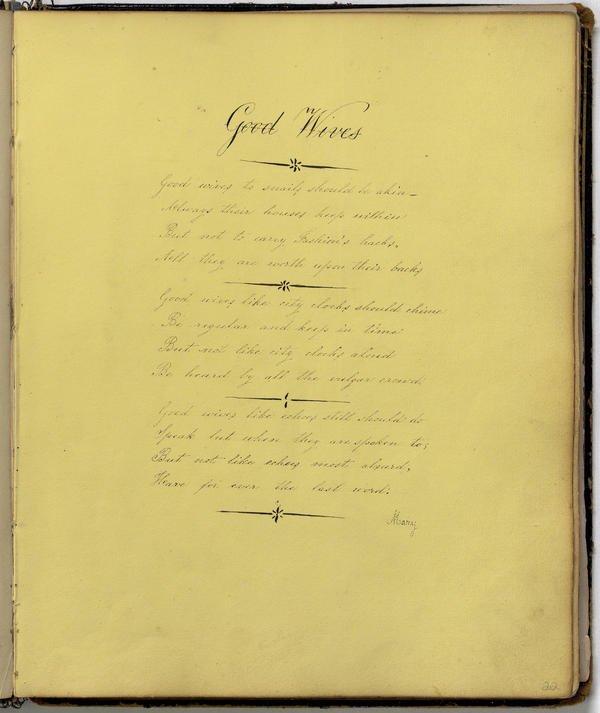 Good Wives
Good wives to snails should be akin—
Always their houses keep within
But not to carry, Fashion's hacks,
All they are worth upon their backs
Good wives like city clocks should chime
Be regular and keep in time
But not like city clocks aloud
Be heard by all the vulgar crowd.
Good wives like echoes still should do
Speak but when they are spoken to;
But not like echoes most absurd,
Have for ever the last word.
Mary
22